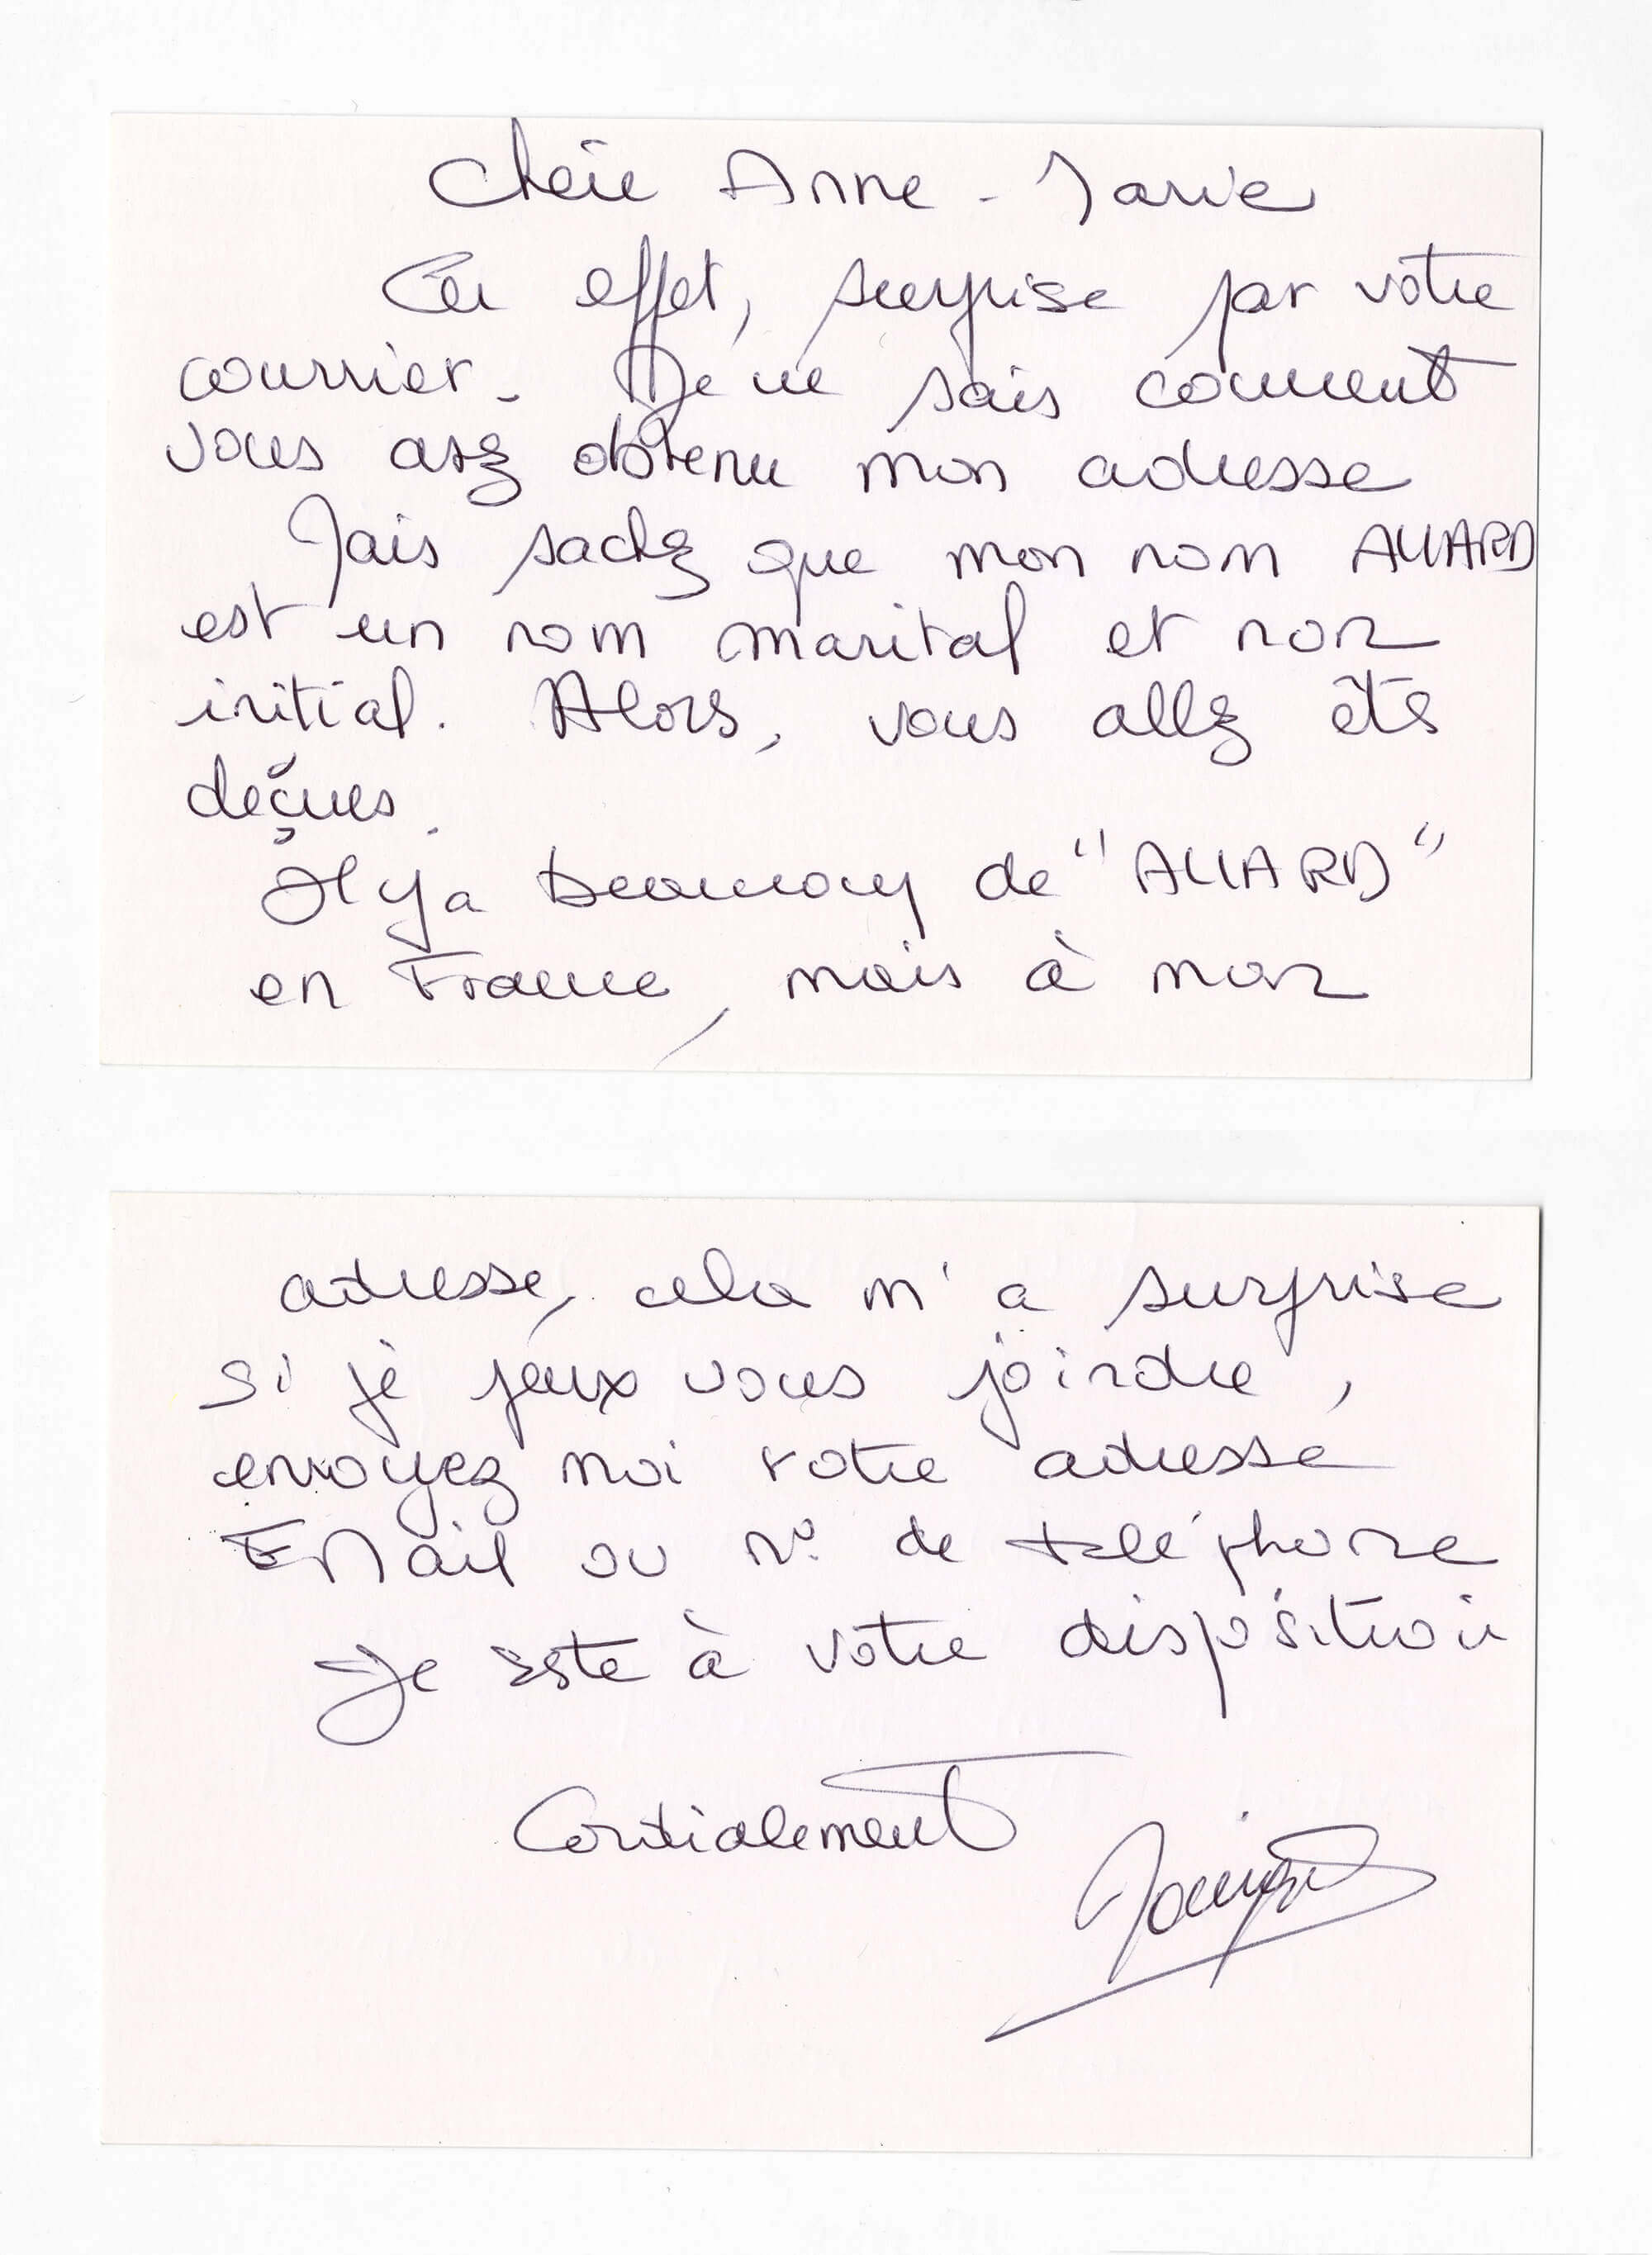 Chère Anne-Marie
En effet, surprise par votre
courrier. Je ne sais comment
vous avez obtenu mon adresse
Mais sachez que mon nom ALLARD
est un nom marital et non
initial. Alors, vous allez être
deçues.
Il y a beaucoup de "ALLARD"
en France, mais à mon
adresse, cela m'a surprise
si je peux vous joindre,
envoyez moi votre adresse
EMail ou N° de téléphone
Je reste à votre disposition
Cordialement